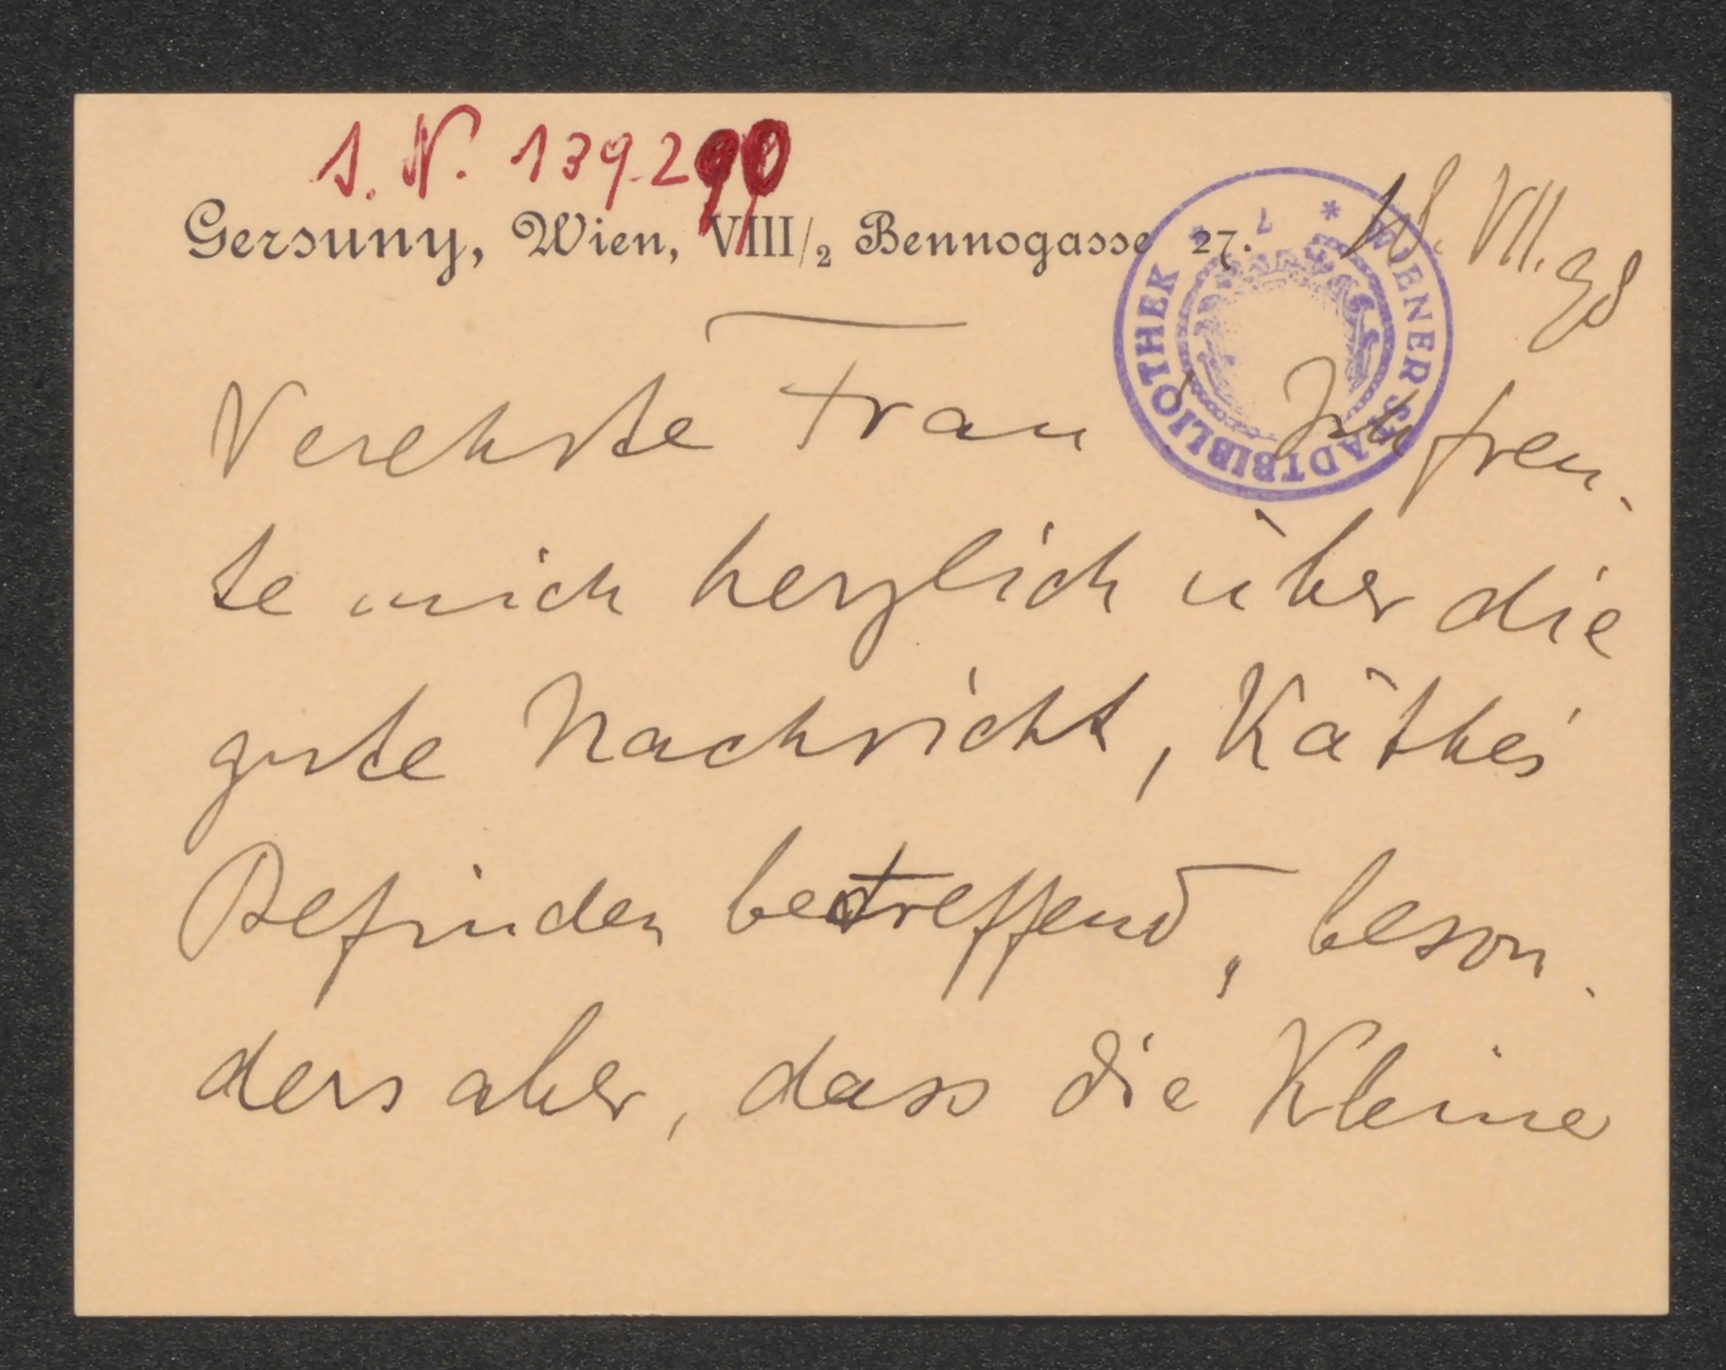 I. N. 139.290
Gersuny, Wien, VIII/2 Bennogasse 27.
18. VII. 98
* WIENER STADTBIBLIOTHEK * 7
Verehrte Frau! Ich freu-
te mich herzlich über die
gute Nachricht, Käthes
Befinden betreffend, beson-
ders aber, dass die Kleine